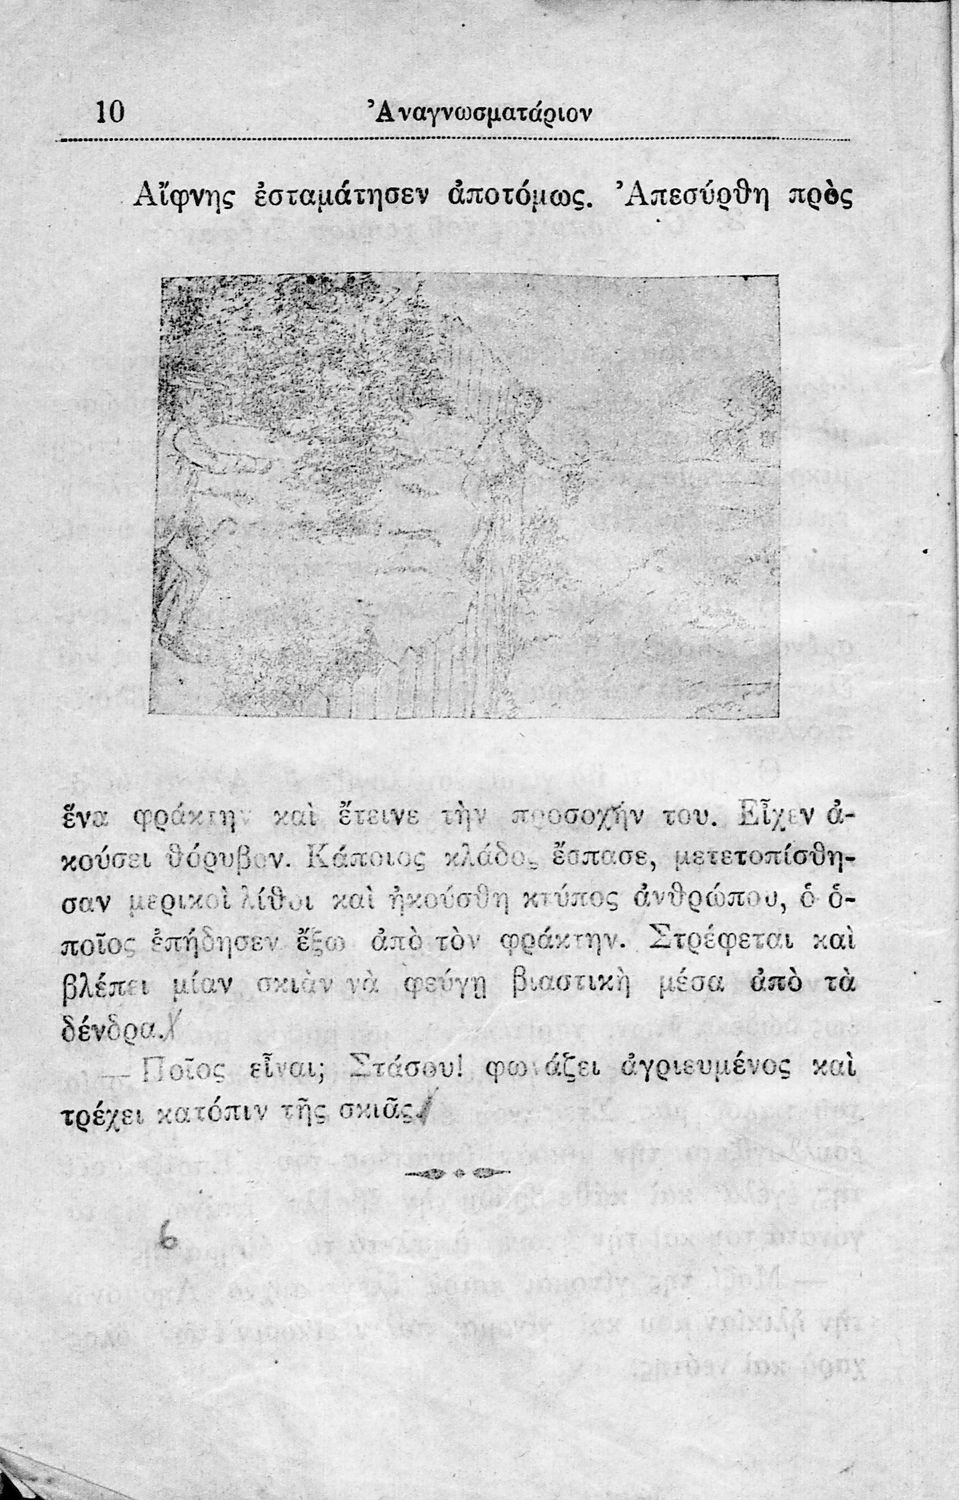 10 Ἀναγνωσματάριον
Αἴφνης ἐσταμάτησεν ἀποτόμως. Ἀπεσύρθη πρὸς
ἕνα φράκτην καὶ ἔτεινε τὴν προσοχήν του. Εἶχεν ἀ-
κούσει θόρυβον. Κάποιος κλάδος ἔσπασε, μετετοπίσθη-
σαν μερικοὶ λίθοι καὶ ἠκούσθη κτύπος ἀνθρώπου, ὁ ὁ-
ποῖος ἐπήδησεν ἔξω ἀπὸ τὸν φράκτην. Στρέφεται καὶ
βλέπει μίαν σκιὰν νὰ φεύγῃ βιαστικὴ μέσα ἀπὸ τὰ
δένδρα.
— Ποῖος εἶναι; Στάσου! φωνάζει ἀγριευμένος καὶ
τρέχει κατόπιν τῆς σκιᾶς.
6